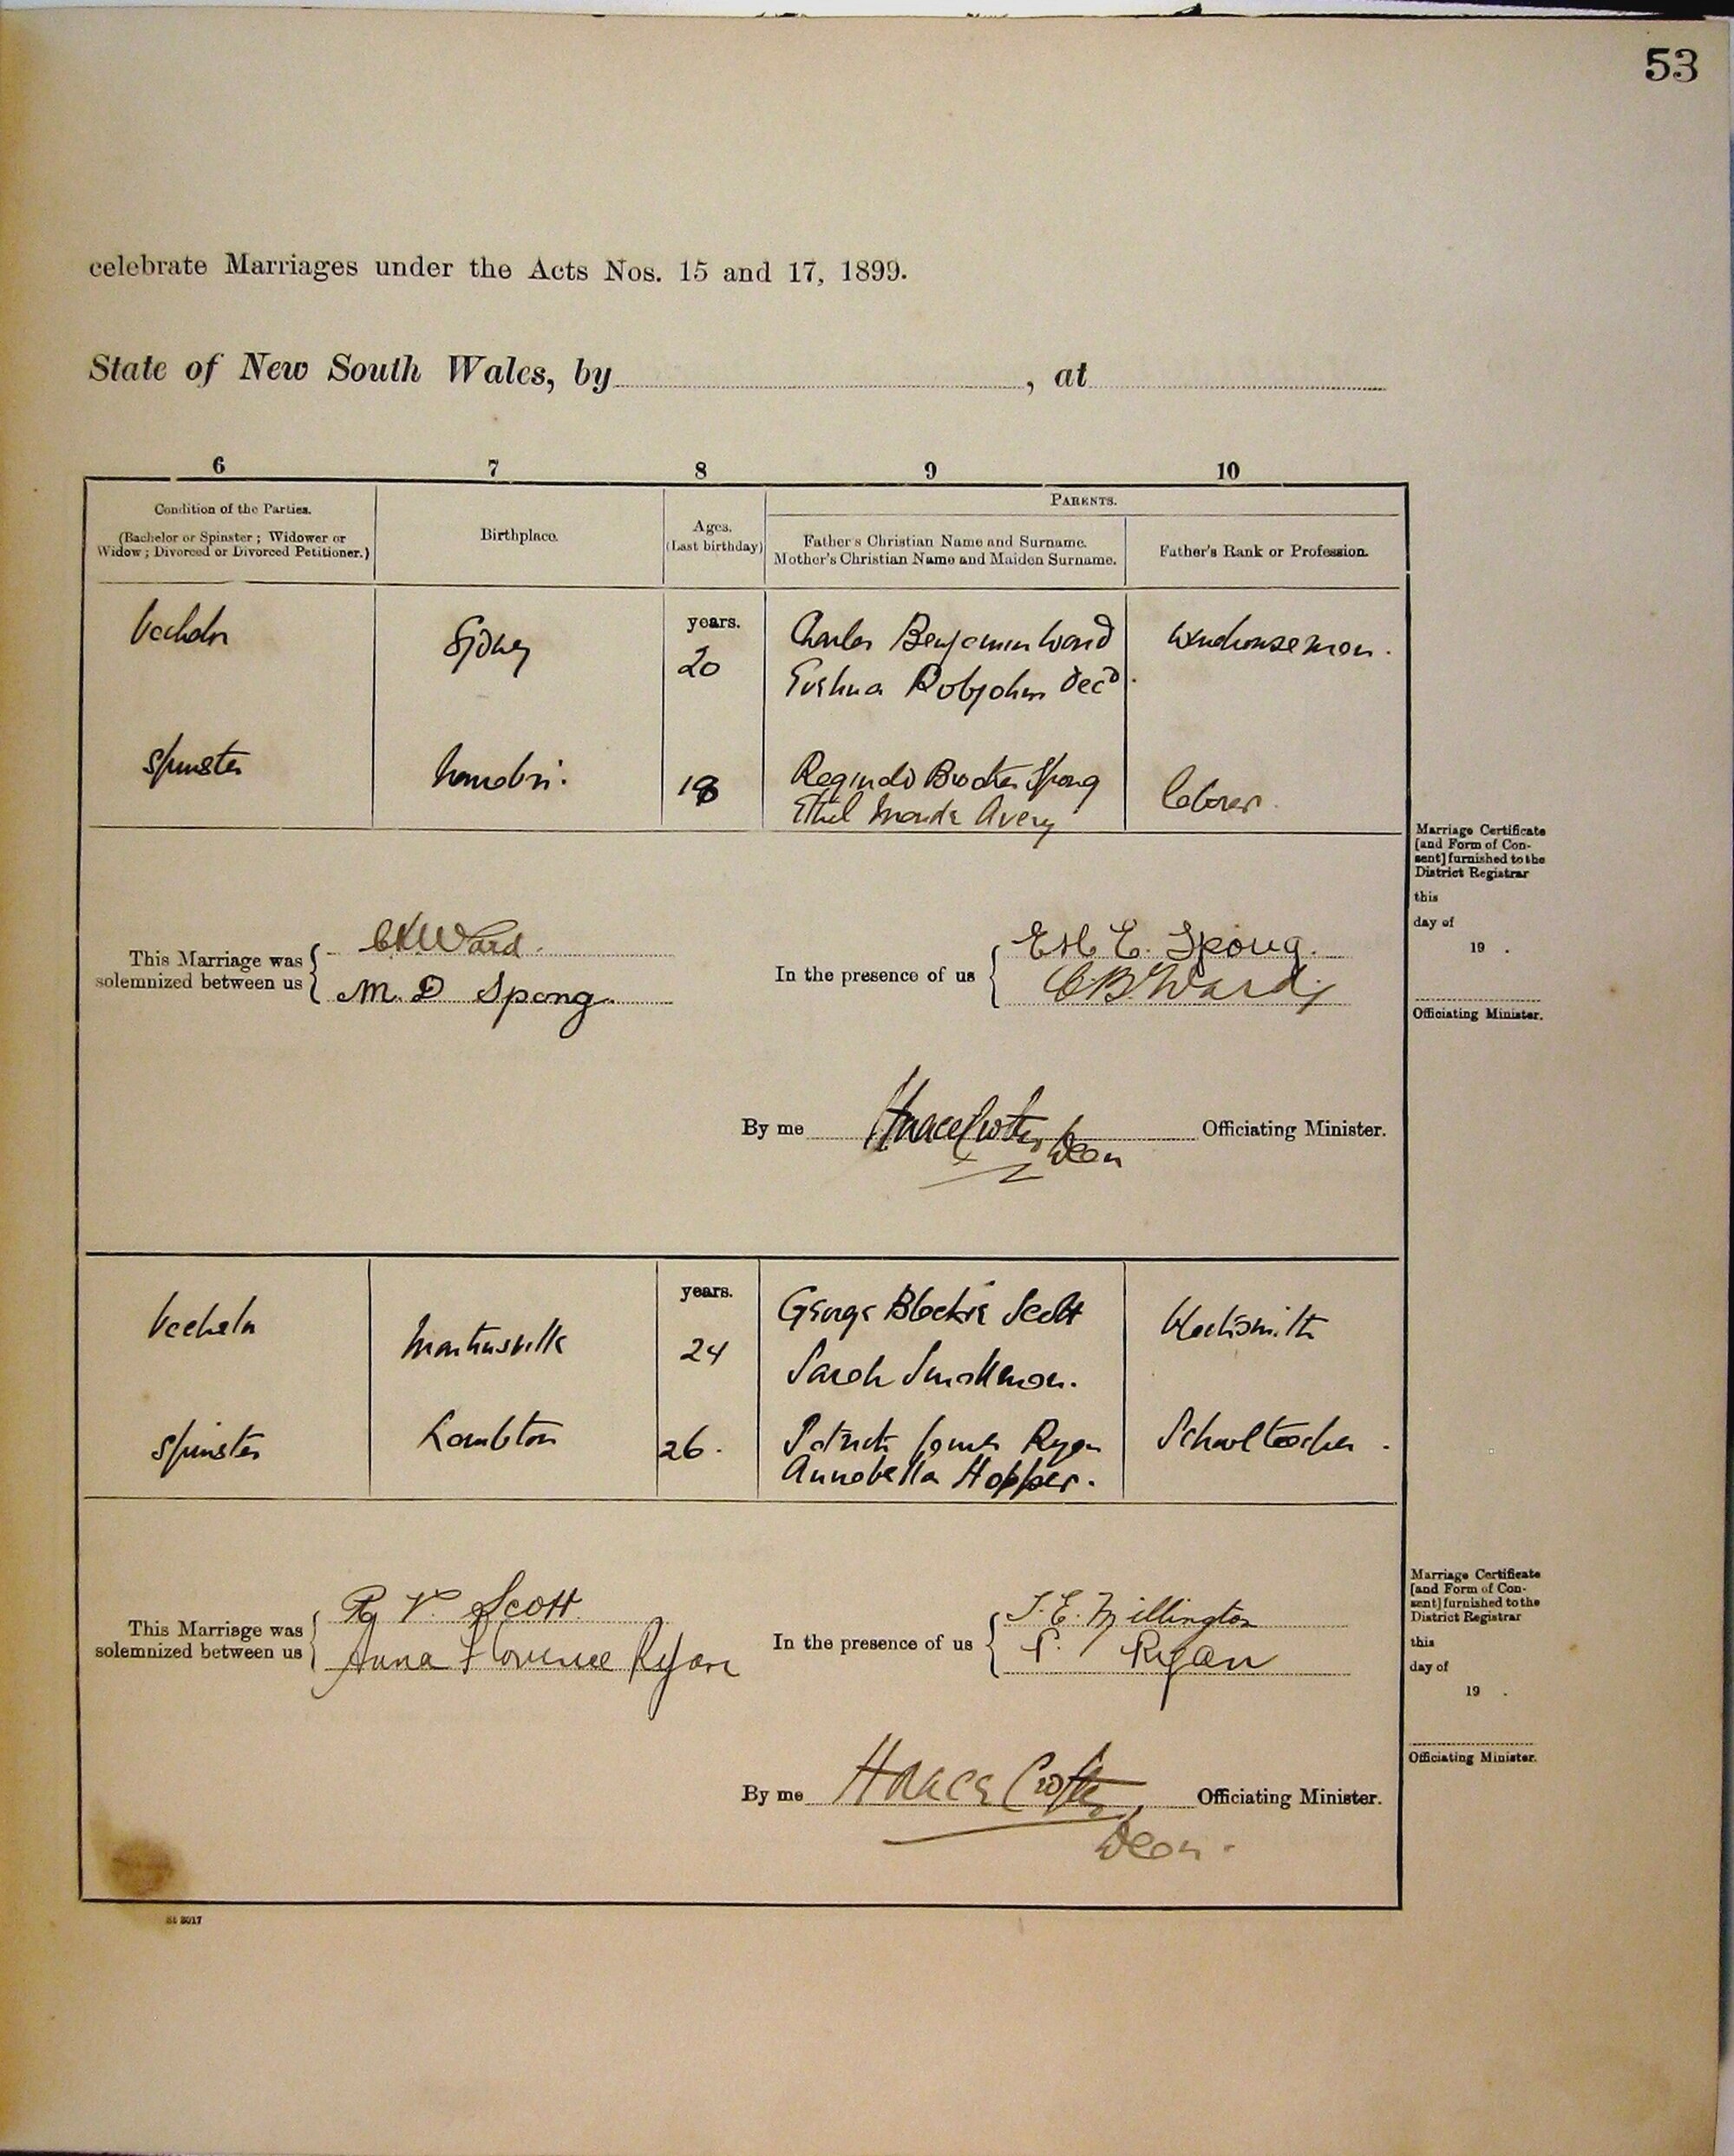 53
celebrate Marriages under the Acts Nos. 15 and 17, 1899.
State of New South Wales, by , at
6 7 8 9 10
Condition of the Parties.
(Bachelor or Spinster ; Widower or
Widow ; Divorced or Divorced Petitioner.)
Birthplace.
Ages.
(Last birthday)
PARENTS.
Father's Christian Name and Surname.
Mother's Christian Name and Maiden Surname.
Father's Rank or Profession.
Bachelor
Sydney
years.
20
Charles Benjamin Ward
Robjohn decd.
Warehouseman.
Spinster
18
Spong
Ethel Maude Avery
laborer.
This Marriage was
solemnized between us
Ward
M. D Spong
In the presence of us
E. Spong.
C B Ward
By me Horace Crotty Dean Officiating Minister.
Marriage Certificate
[and Form of Con-
sent] furnished to the
District Registrar
this
day of
19 .
Officiating Minister.
Bachelor
Martinsville
years.
24
George Blackie Scott
Sarah Smallman.
Blacksmith
Spinster
Lambton
26.
Patrick James Ryan
Annabella Hopper.
School teacher.
This Marriage was
solemnized between us
V. Scott
Anna Florence Ryan
In the presence of us
Millington
P. Ryan
By me Horace Crotty Officiating Minister.
Dean.
Marriage Certificate
[and Form of Con-
sent] furnished to the
District Registrar
this
day of
19 .
Officiating Minister.
St 8017